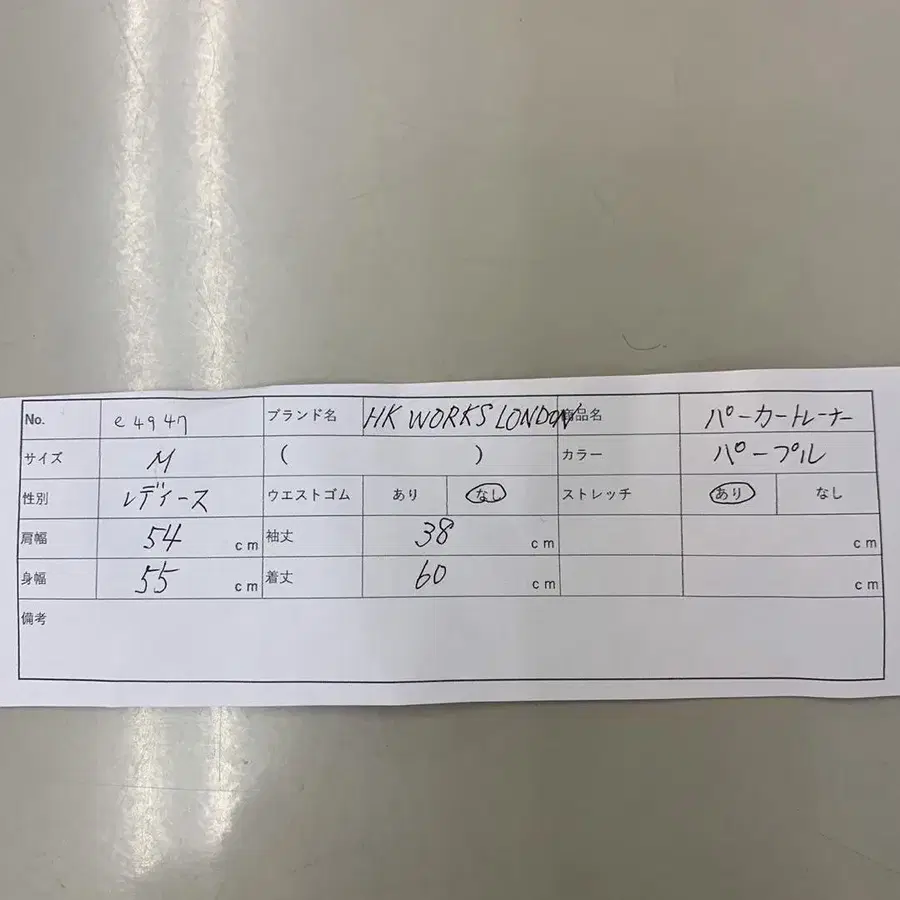 No. e4947 ブランド名 HK WORKS LONDON 商品名 パーカートレーナー
サイズ M ( ) カラー パープル
性別 レディース ウエストゴム あり なし ストレッチ あり なし
肩幅 54 cm 袖丈 38 cm cm
身幅 55 cm 着丈 60 cm cm
備考